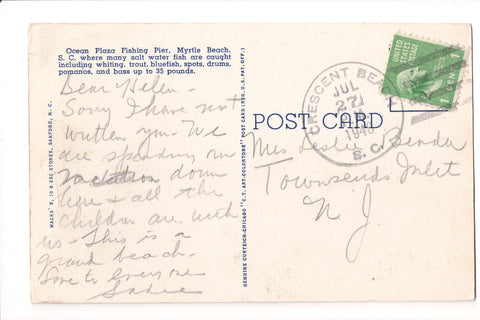 Ocean Plaza Fishing Pier, Myrtle Beach,
S. C. where many salt water fish are caught
including whiting, trout, bluefish, spots, drums,
pomanos, and bass up to 35 pounds.
Dear Helen -
Sorry I have not
written you - We
are spending our
vacation down
here & all the
children are with
us - This is a
grand beach -
Love to everyone
Sadie
MACKS' 5, 10 & 25¢ STORES, SANFORD, N. C.
GENUINE CURTEICH-CHICAGO "C.T. ART-COLORTONE" POST CARD (REG. U. S. PAT. OFF.)
POST CARD
CRESCENT BEACH
JUL
27
1948
S. C.
UNITED STATES
POSTAGE
1 CENT 1
Mrs Leslie Bender
Townsends Inlet
N. J.